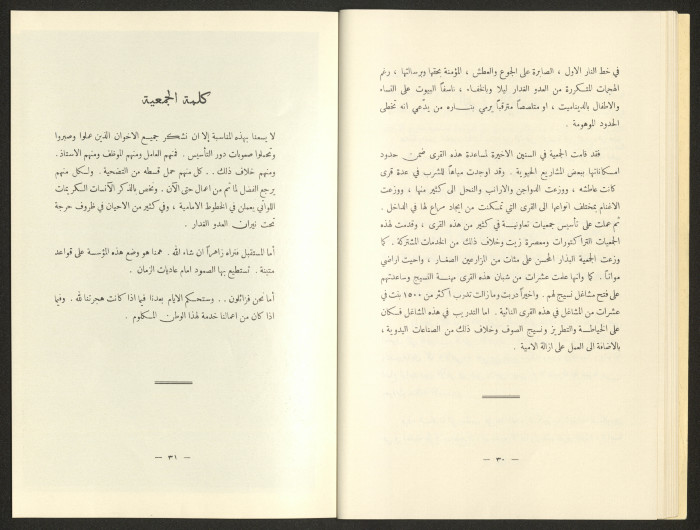 في خط النار الاول ، الصابرة على الجوع والعطش ، المؤمنة بحقها وبرسالتها ، رغم
الهجمات المتكررة من العدو الغدار ليلا وبالخفاء ، ناسفاً البيوت على النساء
والاطفال بالديناميت ، او متلصصاً مترقباً يرمي بناره من يدّعي انه تخطى
الحدود الموهومة .
فقد قامت الجمعية في السنين الاخيرة لمساعدة هذه القرى ضمن حدود
امكاناتها ببعض المشاريع الحيوية . وقد اوجدت مياهاً للشرب في عدة قرى
كانت عاطشة ، ووزعت الدواجن والارانب والنحل الى كثير منها ، ووزعت
الاغنام بمختلف انواعها الى القرى التي تمكنت من ايجاد مراع لها في الداخل .
ثم عملت على تأسيس جمعيات تعاونية في كثير من هذه القرى ، وقدمت لهذه
الجمعيات التراكتورات ومعصرة زيت وخلاف ذلك من الخدمات المشتركة . كما
وزعت الجمعية البذار المحسن على مئات من المزارعين الصغار ، واحيت اراضي
مواتاً . كما وانها علمت عشرات من شبان هذه القرى مهنة النسيج وساعدتهم
على فتح مشاغل نسيج لهم . واخيراً دربت وما زالت تدرب اكثر من ١٥٠٠ بنت في
عشرات من المشاغل في هذه القرى النائية . اما التدريب في هذه المشاغل فكان
على الخياطة والتطريز ونسيج الصوف وخلاف ذلك من الصناعات اليدوية ،
بالاضافة الى العمل على ازالة الامية .
— ٣٠ —
كلمة الجمعية
لا يسعنا بهذه المناسبة إلا ان نشكر جميع الاخوان الذين عملوا وصبروا
وتحملوا صعوبات دور التأسيس . فمنهم العامل ومنهم الموظف ومنهم الاستاذ .
ومنهم خلاف ذلك .. كل منهم حمل قسطه من التضحية . ولكل منهم
يرجع الفضل لما تم من اعمال حتى الآن . ونخص بالذكر الآنسات الكريمات
اللواتي يعملن في الخطوط الامامية ، وفي كثير من الاحيان في ظروف حرجة
تحت نيران العدو الغدار .
أما المستقبل فنراه زاهراً ان شاء الله . همنا هو وضع هذه المؤسسة على قواعد
متينة . تستطيع بها الصمود امام عاديات الزمان .
أما نحن فزائلون .. وستحكم الايام بعدنا فيما اذا كانت هجرتنا لله . وفيما
اذا كان من اعمالنا خدمة لهذا الوطن المكلوم .
— ٣١ —